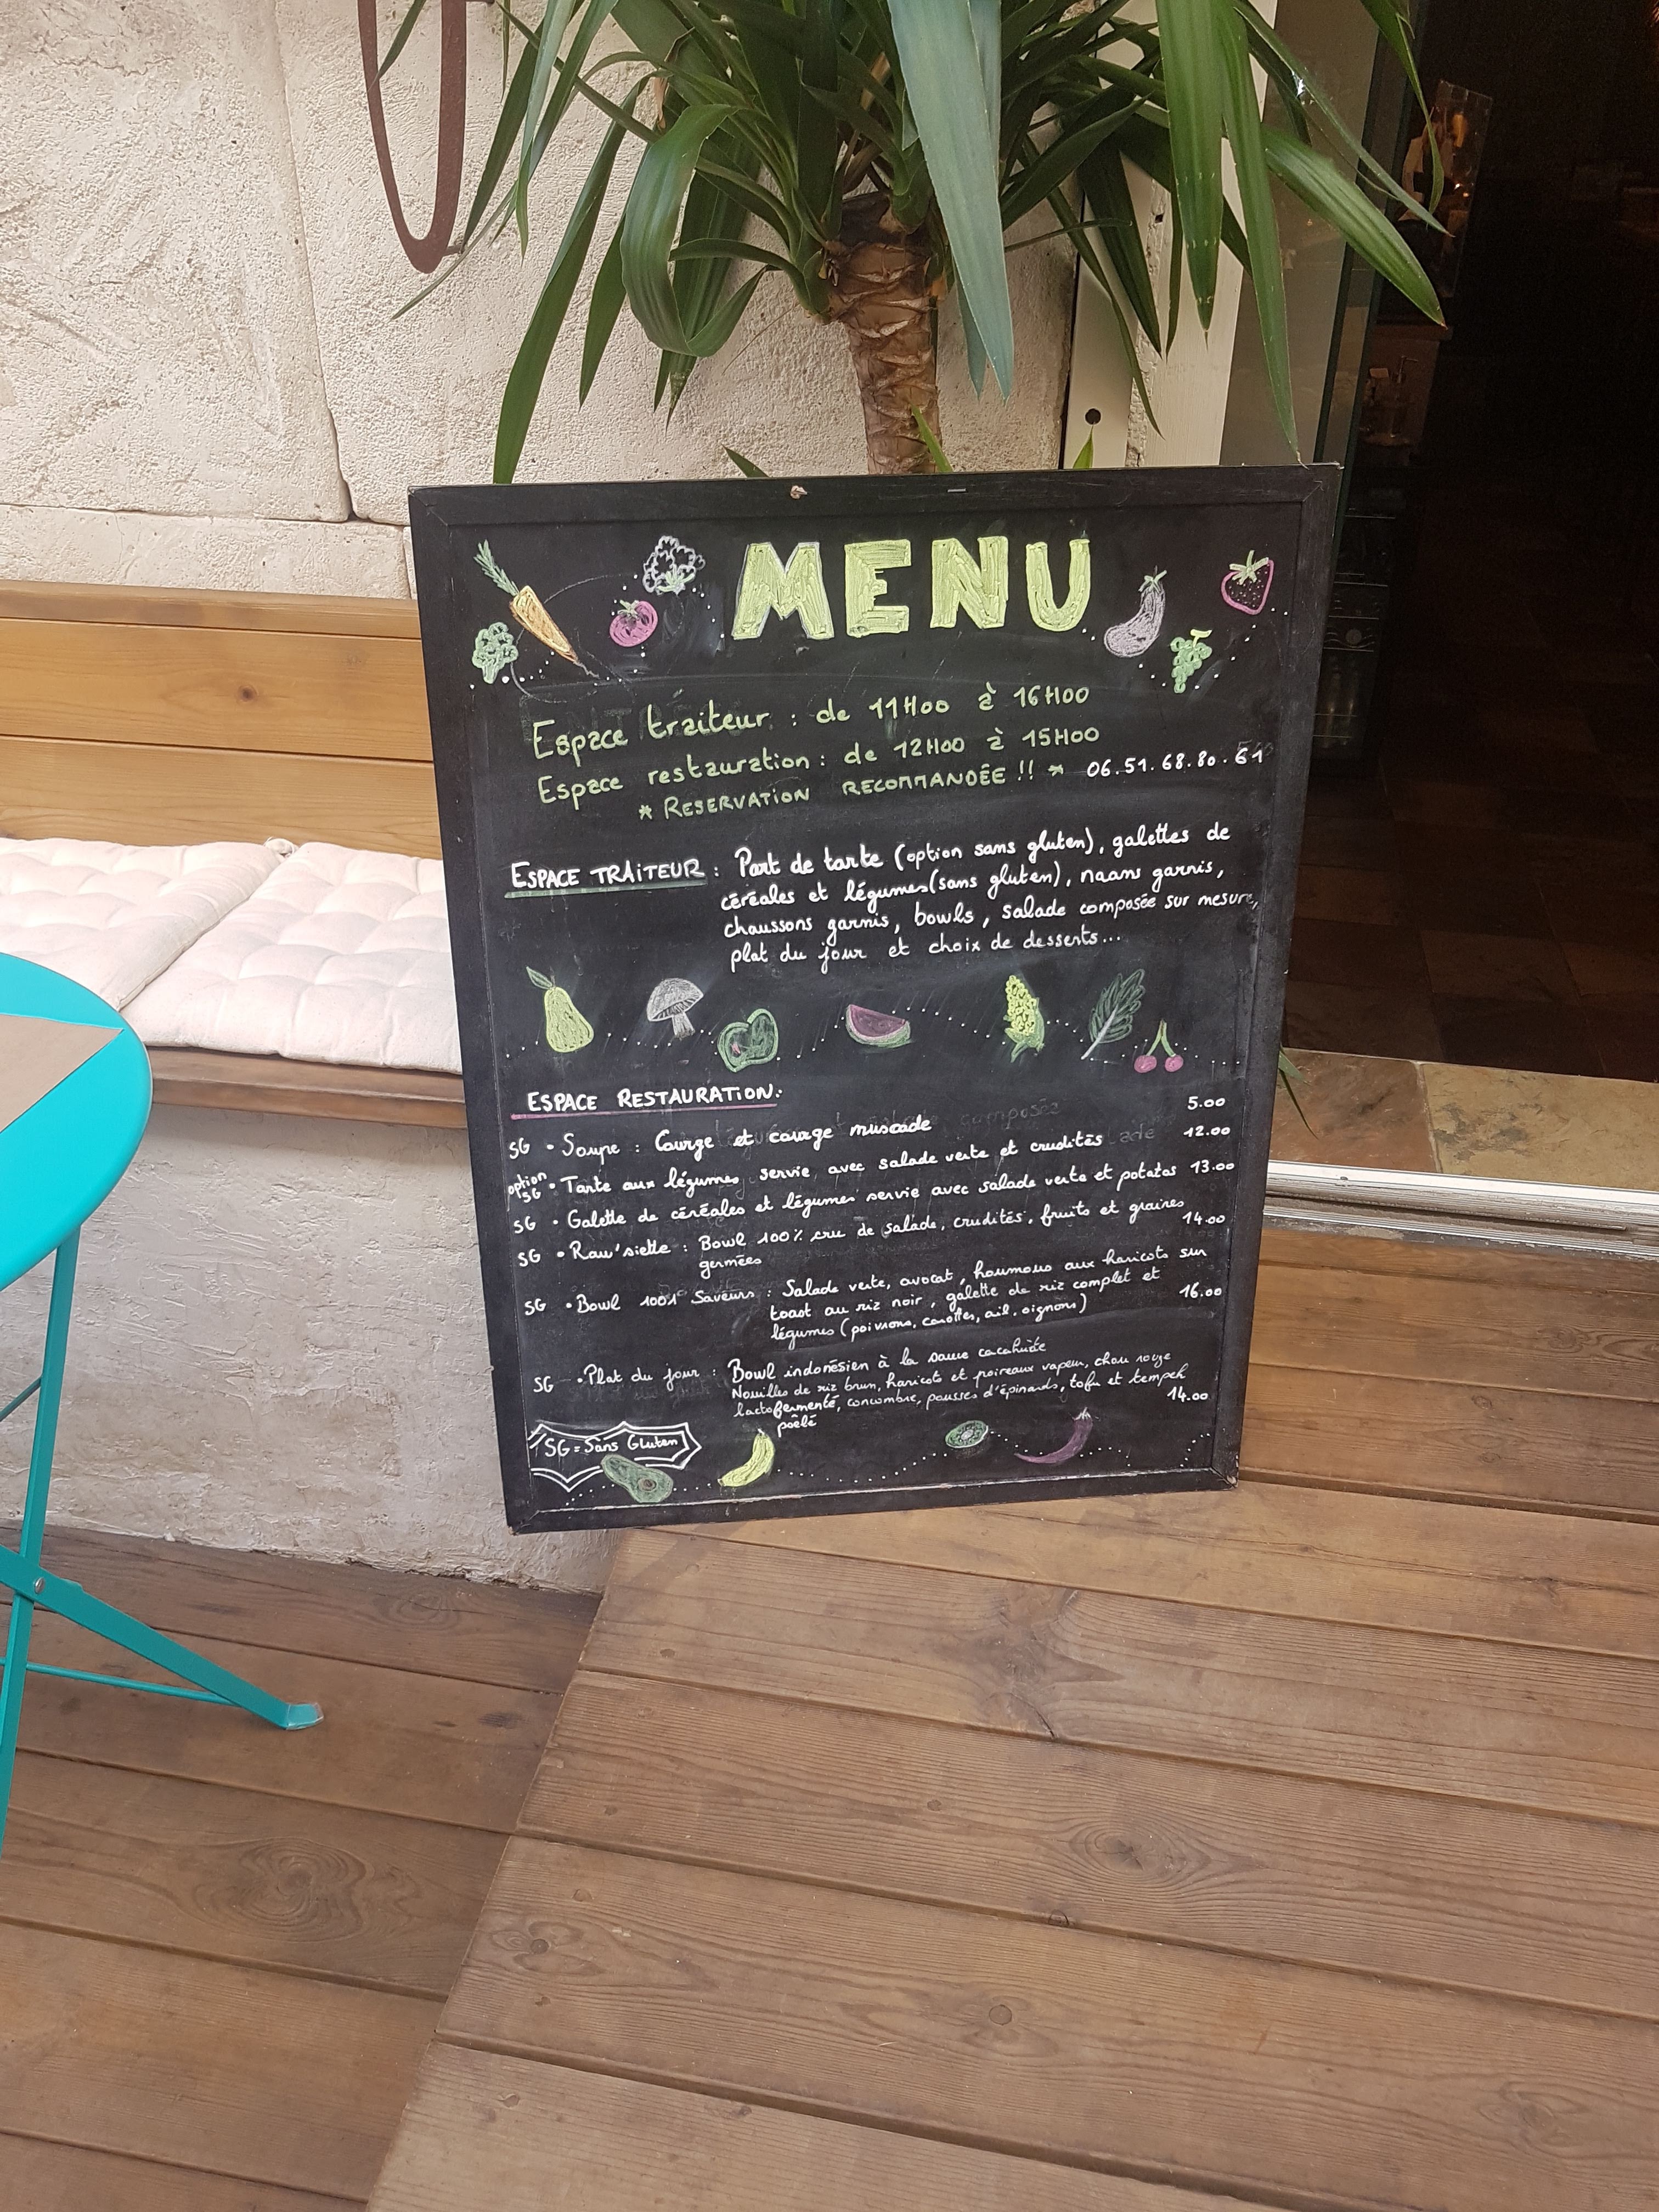 MENU
Espace traiteur : de 11H00 à 16H00
Espace restauration : de 12H00 à 15H00
* RESERVATION RECOMMANDÉE !! * 06.51.68.80.61
ESPACE TRAITEUR : Part de tarte (option sans gluten), galettes de
céréales et légumes (sans gluten), naans garnis,
chaussons garnis, bowls, salade composée sur mesure,
plat du jour et choix de desserts...
ESPACE RESTAURATION :
SG • Soupe : Courge et courge muscade 5.00
option SG • Tarte aux légumes servie avec salade verte et crudités 12.00
SG • Galette de céréales et légumes servie avec salade verte et potatos 13.00
SG • Raw'siette : Bowl 100% cru de salade, crudités, fruits et graines
germées 14.00
SG • Bowl 1001 Saveurs : Salade verte, avocat, houmous aux haricots sur
toast au riz noir, galette de riz complet et
légumes (poivrons, carottes, ail, oignons) 16.00
SG • Plat du jour : Bowl indonésien à la sauce cacahuète
Nouilles de riz brun, haricots et poireaux vapeur, chou rouge
lactofermenté, concombre, pousses d'épinards, tofu et tempeh
poêlé 14.00
SG = Sans Gluten